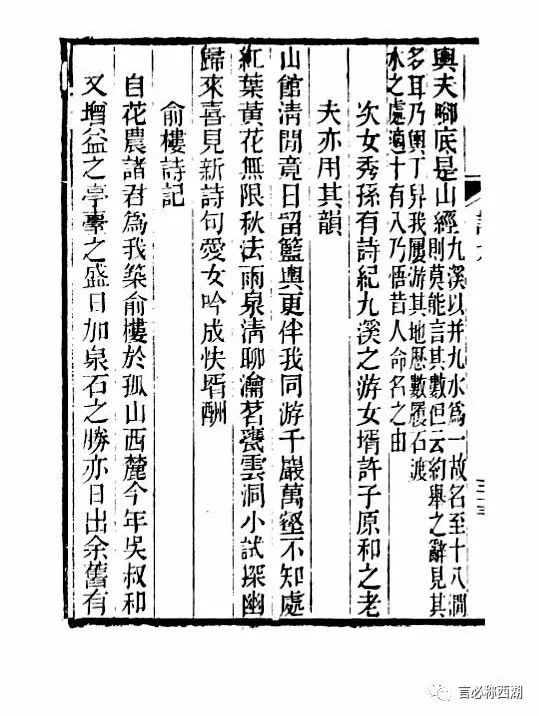 輿夫腳底是山經九溪以并九水爲一故名至十八澗
則莫能言其數但云約舉之辭見其
多耳乃輿丁舁我屢游其地歷數履石渡
水之處適十有八乃悟昔人命名之由
次女秀孫有詩紀九溪之游女壻許子原和之老
夫亦用其韻
山館清閒竟日留籃輿更伴我同游千巖萬壑不知處
紅葉黃花無限秋法雨泉清聊瀹茗甕雲洞小試探幽
歸來喜見新詩句愛女吟成快壻酬
俞樓詩記
自花農諸君爲我築俞樓於孤山西麓今年吳叔和
又增益之亭臺之盛日加泉石之勝亦日出余舊有
言必称西湖